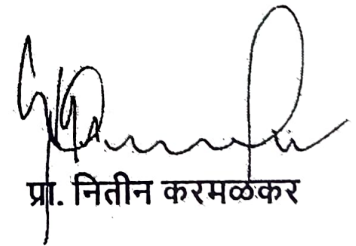 प्रा. नितीन करमळकर